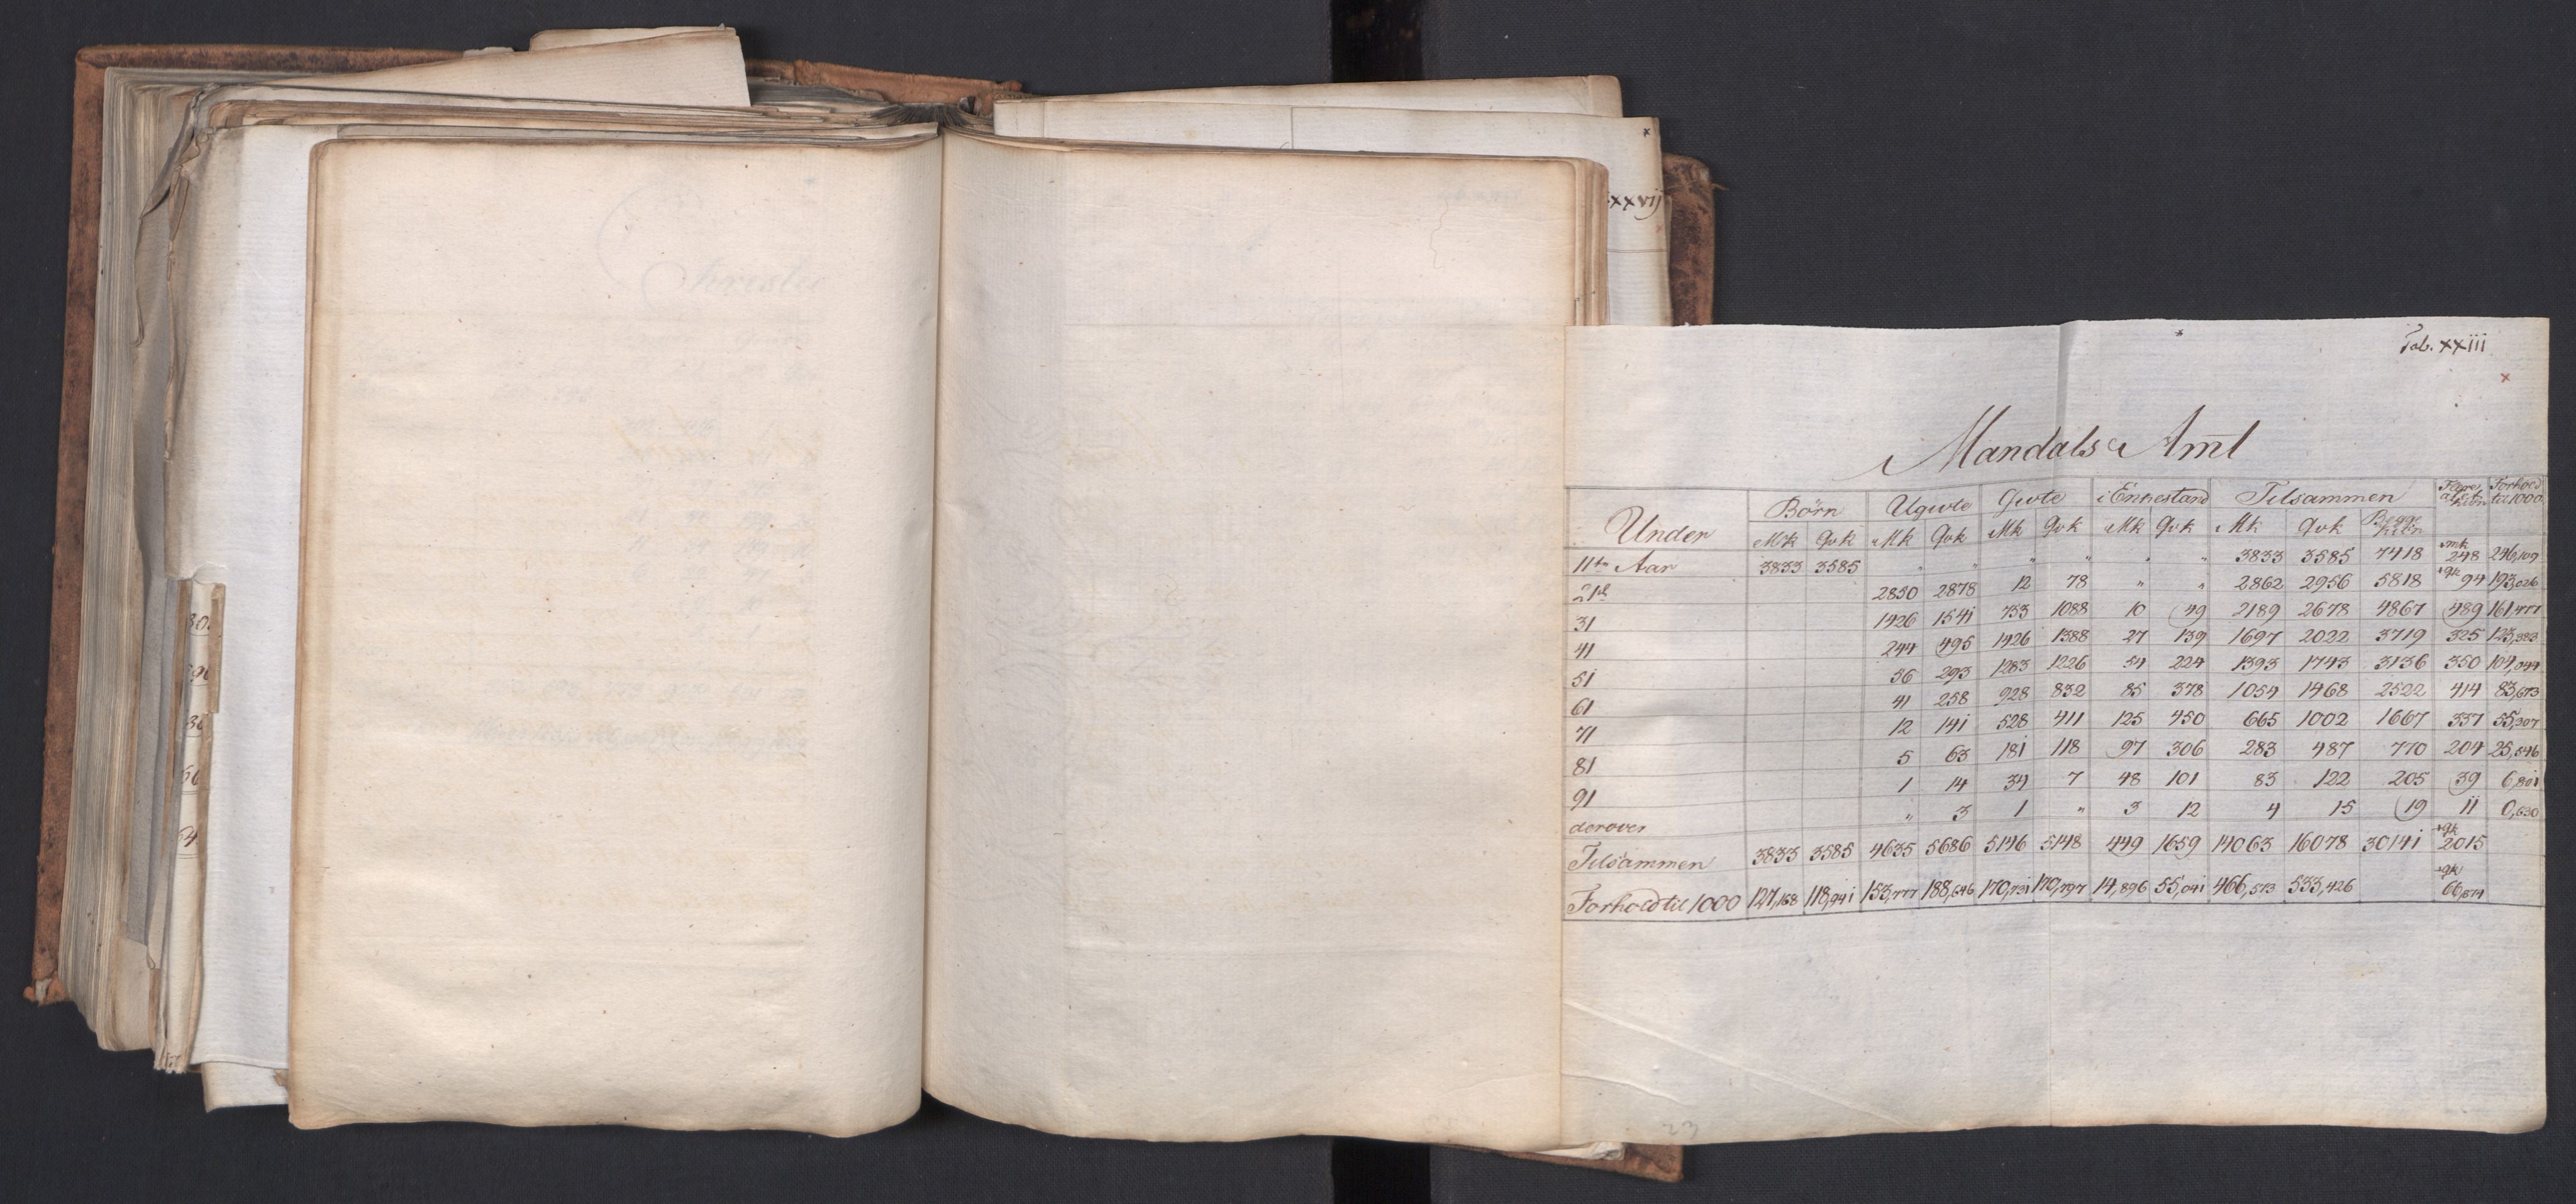 xxvij
Tab. xxiii
Mandals Amt
Under | Børn | Ugivte | Givte | i Enkestand | Tilsammen | Fleere af et Kiøn | Forhold til 1000
Mk | Qvk | Mk | Qvk | Mk | Qvk | Mk | Qvk | Mk | Qvk | Begge Kiøn
11te Aar | 3833 | 3585 | " | " | " | " | " | " | 3833 | 3585 | 7418 | mk 248 | 246,109
21 | 2850 | 2878 | 12 | 78 | " | " | 2862 | 2956 | 5818 | qk 94 | 193,026
31 | 1426 | 1541 | 753 | 1088 | 10 | 49 | 2189 | 2678 | 4867 | 489 | 161,477
41 | 244 | 495 | 1426 | 1388 | 27 | 139 | 1697 | 2022 | 3719 | 325 | 123,383
51 | 56 | 293 | 1283 | 1226 | 54 | 224 | 1393 | 1743 | 3136 | 350 | 104,044
61 | 41 | 258 | 928 | 832 | 85 | 378 | 1054 | 1468 | 2522 | 414 | 83,673
71 | 12 | 141 | 528 | 411 | 125 | 450 | 665 | 1002 | 1667 | 337 | 55,307
81 | 5 | 63 | 181 | 118 | 97 | 306 | 283 | 487 | 770 | 204 | 25,546
91 | 1 | 14 | 34 | 7 | 48 | 101 | 83 | 122 | 205 | 39 | 6,801
derover | " | 3 | 1 | " | 3 | 12 | 4 | 15 | 19 | 11 | 0,630
Tilsammen | 3833 | 3585 | 4635 | 5686 | 5146 | 5148 | 449 | 1659 | 14063 | 16078 | 30141 | qk 2015
Forhold til 1000 | 127,168 | 118,941 | 153,777 | 188,646 | 170,731 | 170,797 | 14,896 | 55,041 | 466,573 | 533,426 | qk 66,874
23